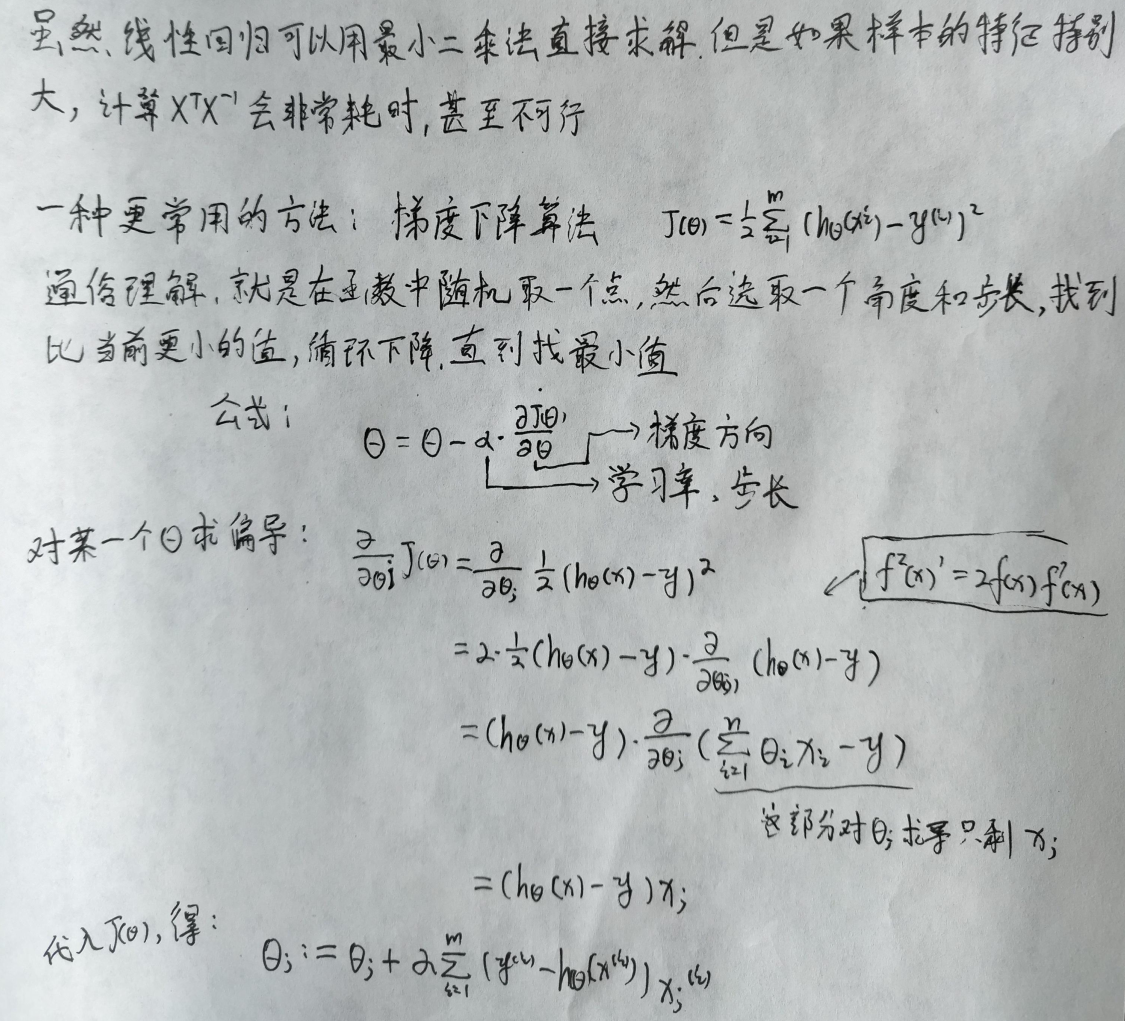 虽然、线性回归可以用最小二乘法直接求解.但是如果样本的特征特别
大，计算XᵀX⁻¹会非常耗时,甚至不可行
一种更常用的方法：梯度下降算法 J(θ)=½∑ᵢ₌₁ᵐ(hθ(xⁱ)-y⁽ⁱ⁾)²
通俗理解.就是在函数中随机取一个点,然后选取一个角度和步长,找到
比当前更小的值,循环下降.直到找最小值
公式：
θ=θ-α·∂J(θ)/∂θ →梯度方向
→学习率、步长
对某一个θ求偏导： ∂/∂θj J(θ)=∂/∂θj ½(hθ(x)-y)²
f²(x)'=2f(x)f'(x)
=2·½(hθ(x)-y)·∂/∂θj(hθ(x)-y)
=(hθ(x)-y)·∂/∂θj(∑ᵢ₌₁ⁿθᵢxᵢ-y)
这部分对θj求导只剩xj
=(hθ(x)-y)xj
代入J(θ),得：
θj:=θj+α∑ᵢ₌₁ᵐ(y⁽ⁱ⁾-hθ(x⁽ⁱ⁾))xj⁽ⁱ⁾